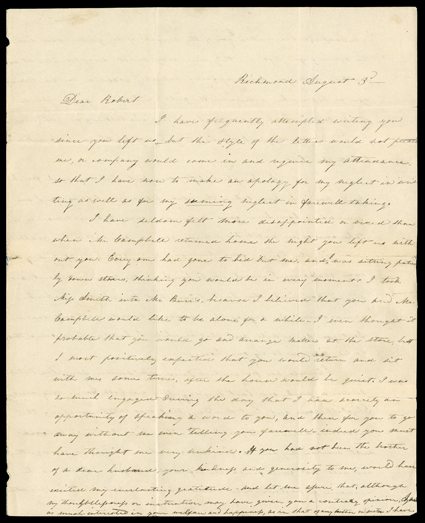 Richmond August 3d
Dear Robert
I have frequently attempted writing you
since you left us, but the style of the letter would not please
me, or company would come in and require my attendance
so that I have now to make an apology for my neglect in wri
ting as well as for my seeming neglect in farewell taking.
I have seldom felt more disappointed or vexed than
when Mr Campbell returned home the night you left us with
out you. Every one had gone to bed but me, and I was sitting
by down stairs, thinking you would be in every moment. I took
Miss Smith into Mr because I believed that you and Mr
Campbell would like to be alone for a while. I even thought it
probable that you would go and arrange matters at the store, but
I most positively expected that you would return and sit
with me some time, after the house would be quiet. I was
so much engaged during the day, that I had scarcely an
opportunity of speaking a word to you, and then for you to go
away without me even telling you farewell indeed you must
have thought me very unkind. If you had not been the brother
of a dear husband, your kindness and generosity to me, would have
excited my everlasting gratitude. And let me assure that, although
my thoughtlessness or inattention may have given you a contrary opinion,
as much interested in your welfare and happiness, as in that of any brother or sister I have